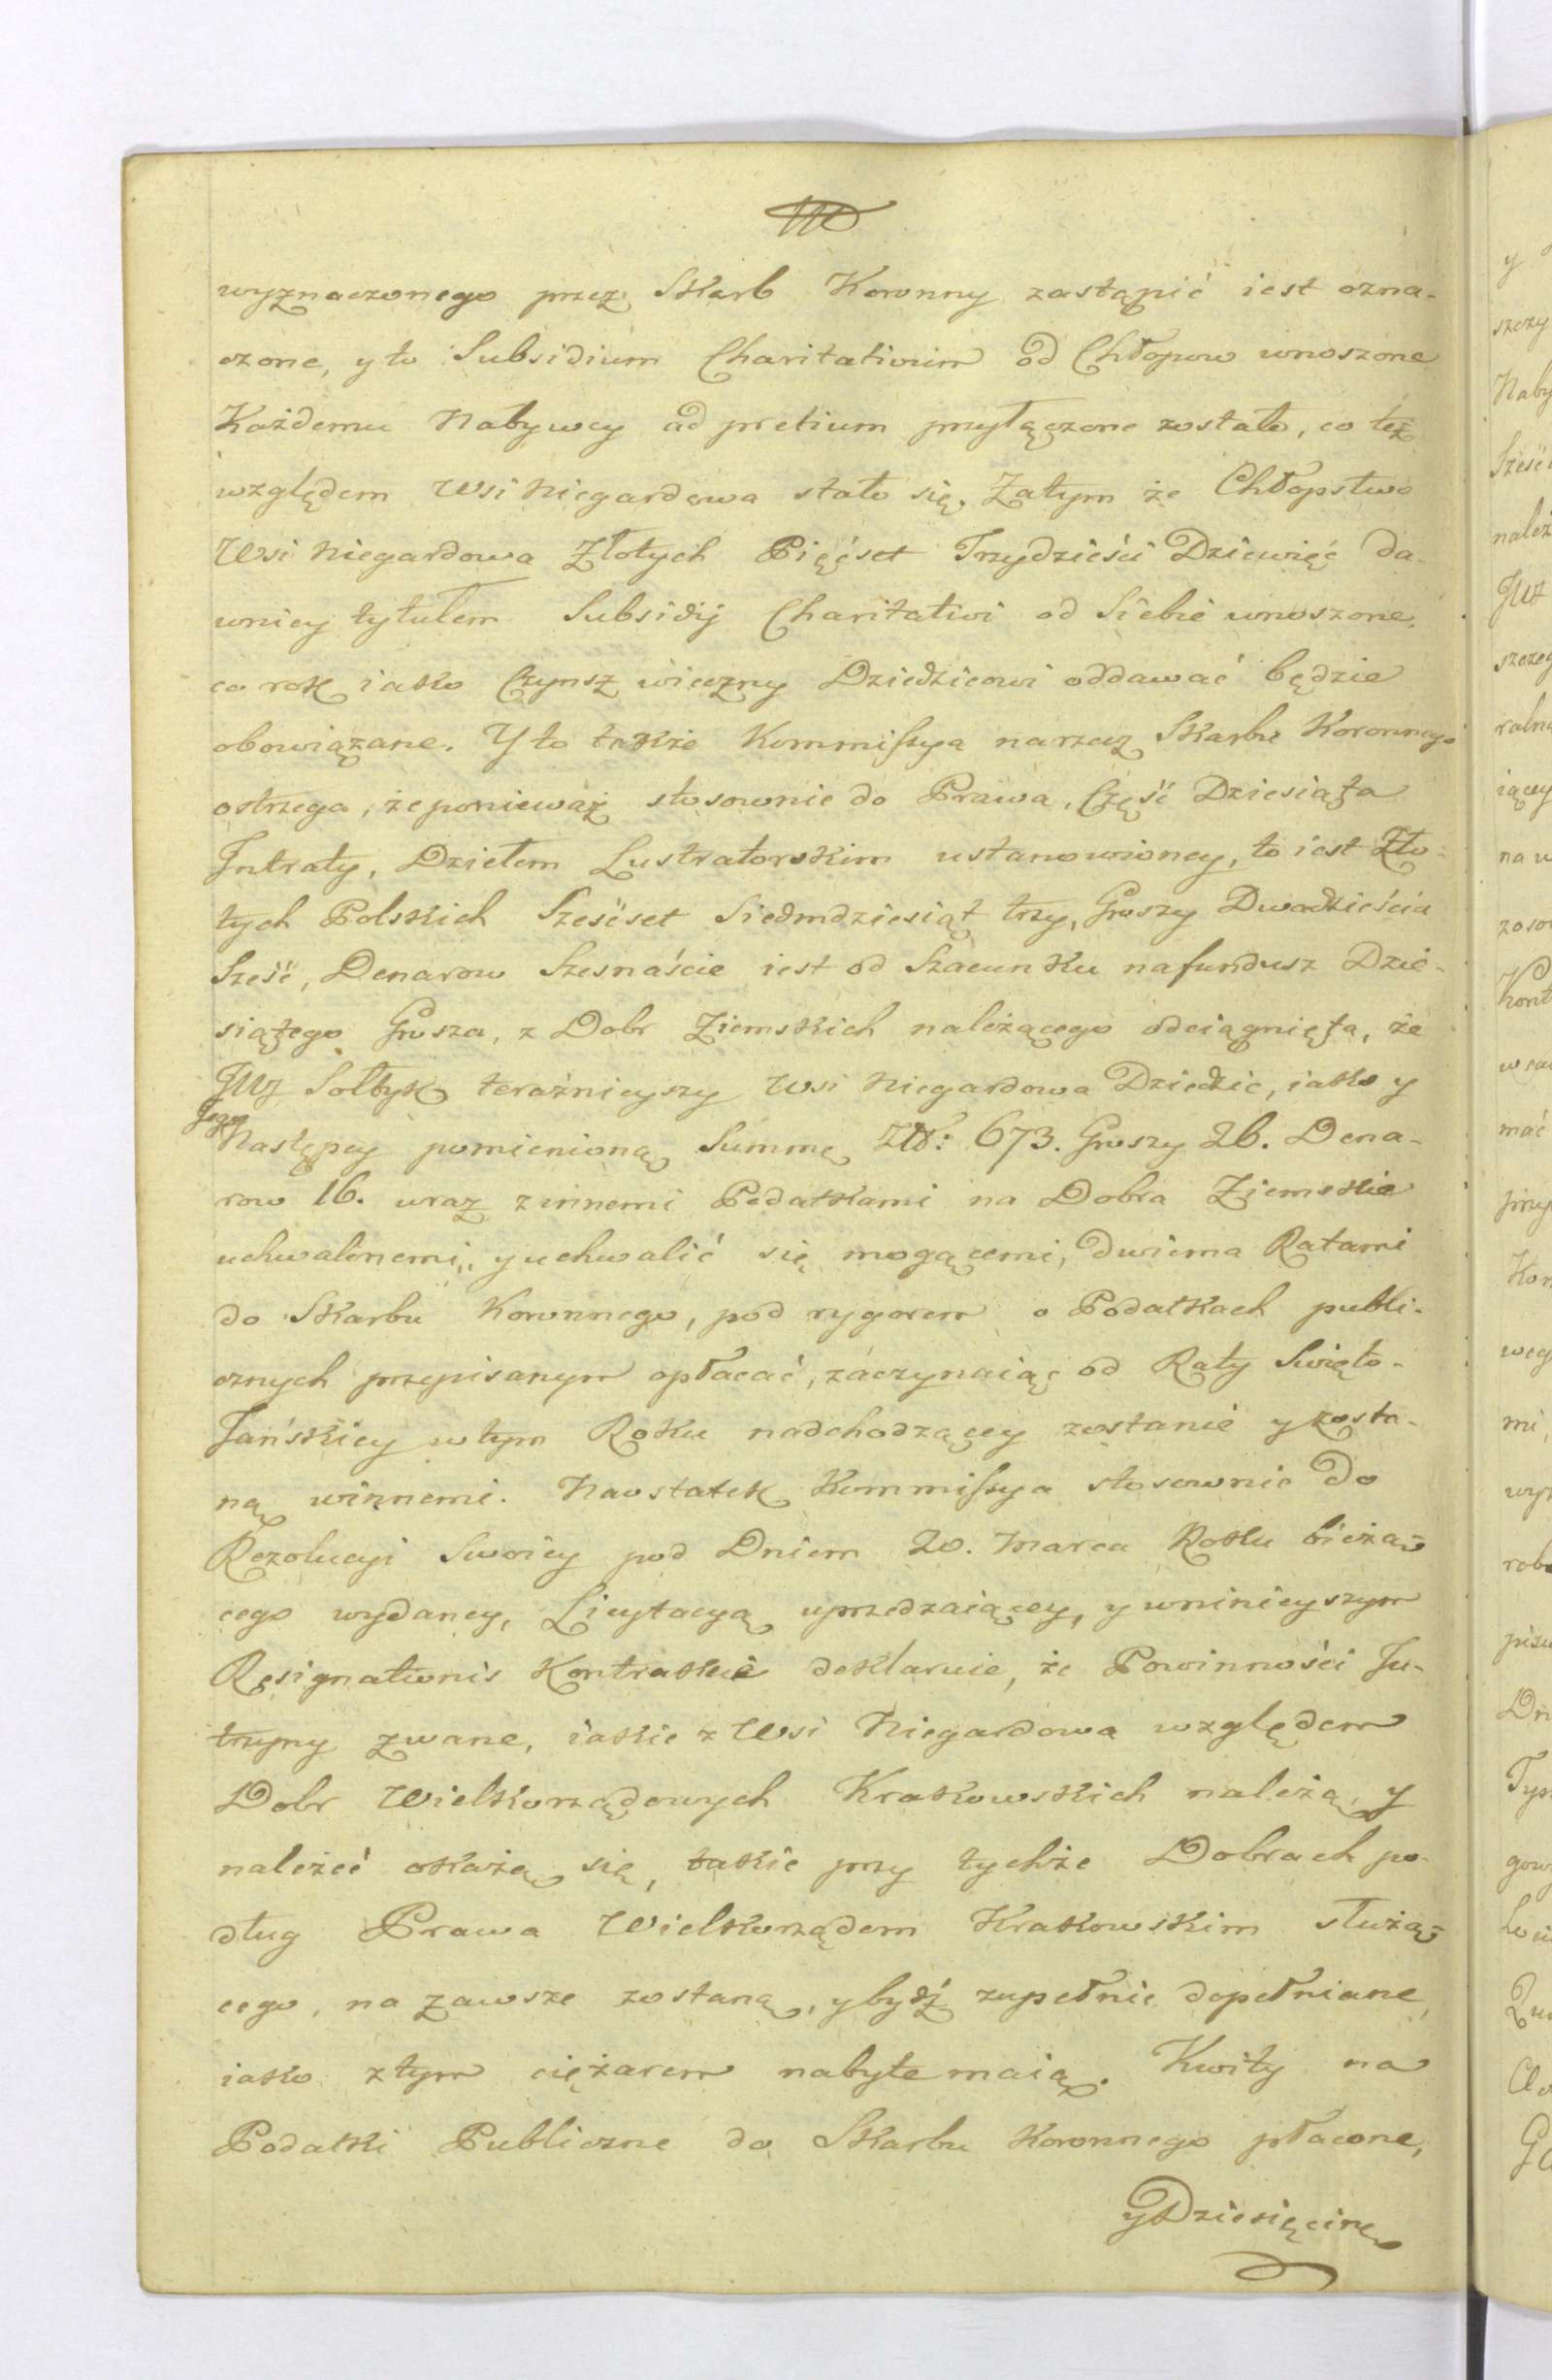 wyznaczonego przez Skarb Koronny zastąpić iest ozna-
czone, y to Subsidium Charitativum od Chłopow wnoszone
Każdemu Nabywcy ad pretium przyłączone zostało, co też
względem Wsi Niegardowa stało się. Zatym że Chłopstwo
Wsi Niegardowa Złotych Pięćset Trzydzieści Dziewięć da-
wniey tytułem Subsidij Charitativi od Siebie wnoszone,
co rok iako Czynsz wieczny Dziedzicowi oddawać będzie
obowiązane. Y to także Kommissya na rzecz Skarbu Koronnego
ostrzega, że ponieważ stosownie do Prawa, Część Dziesiąta
Intraty, Dziełem Lustratorskim ustanowioney, to iest Zło-
tych Polskich Sześćset Siedmdziesiąt trzy, Groszy Dwadzieścia
Sześć, Denarow Szesnaście iest od Szacunku na fundusz Dzie-
siątego Grosza, z Dobr Ziemskich należącego odciągnięta, że
JWJ Sołtyk teraźnieyszy Wsi Niegardowa Dziedzic, iako y
Jego
Następcy pomienioną Summę Złł: 673. Groszy 26. Dena-
row 16. wraz z innemi Podatkami na Dobra Ziemskie
uchwalonemi, y uchwalić się mogącemi, dwiema Ratami
do Skarbu Koronnego, pod rygorem o Podatkach publi-
cznych przepisanym opłacać, zaczynaiąc od Raty Swięto-
Jańskiey w tym Roku nadchodzącey zostanie y zosta-
ną winnemi. Naostatek Kommissya stosownie do
Rezolucyi Swoiey pod Dniem 20. Marca Roku bieżą-
cego wydaney, Licytacyą uprzedzaiącey, y w ninieyszym
Resignationis Kontrakcie deklaruie, że Powinności Ju-
trzyny zwane, iakie z Wsi Niegardowa względem
Dobr Wielkorządowych Krakowskich należą, y
należeć okażą się, takie przy tychże Dobrach po-
dług Prawa Wielkorządom Krakowskim służą-
cego, na zawsze zostaną, y bydź zupełnie dopełniane,
iako z tym ciężarem nabyte maią. Kwity na
Podatki Publiczne do Skarbu Koronnego płacone,
y Dziesięcinę